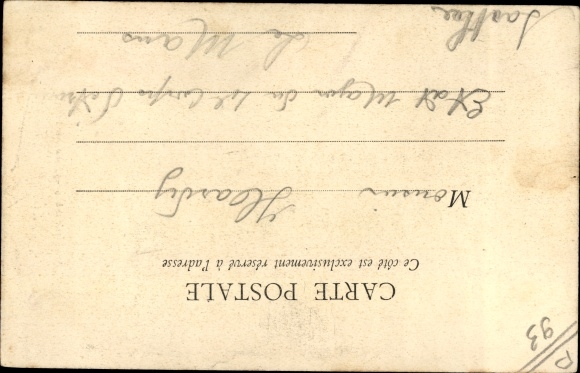 CARTE POSTALE
Ce côté est exclusivement réservé à l'adresse
Monsieur Hardy
Etat Major du 4e Corps
Le Mans
Sarthe
93